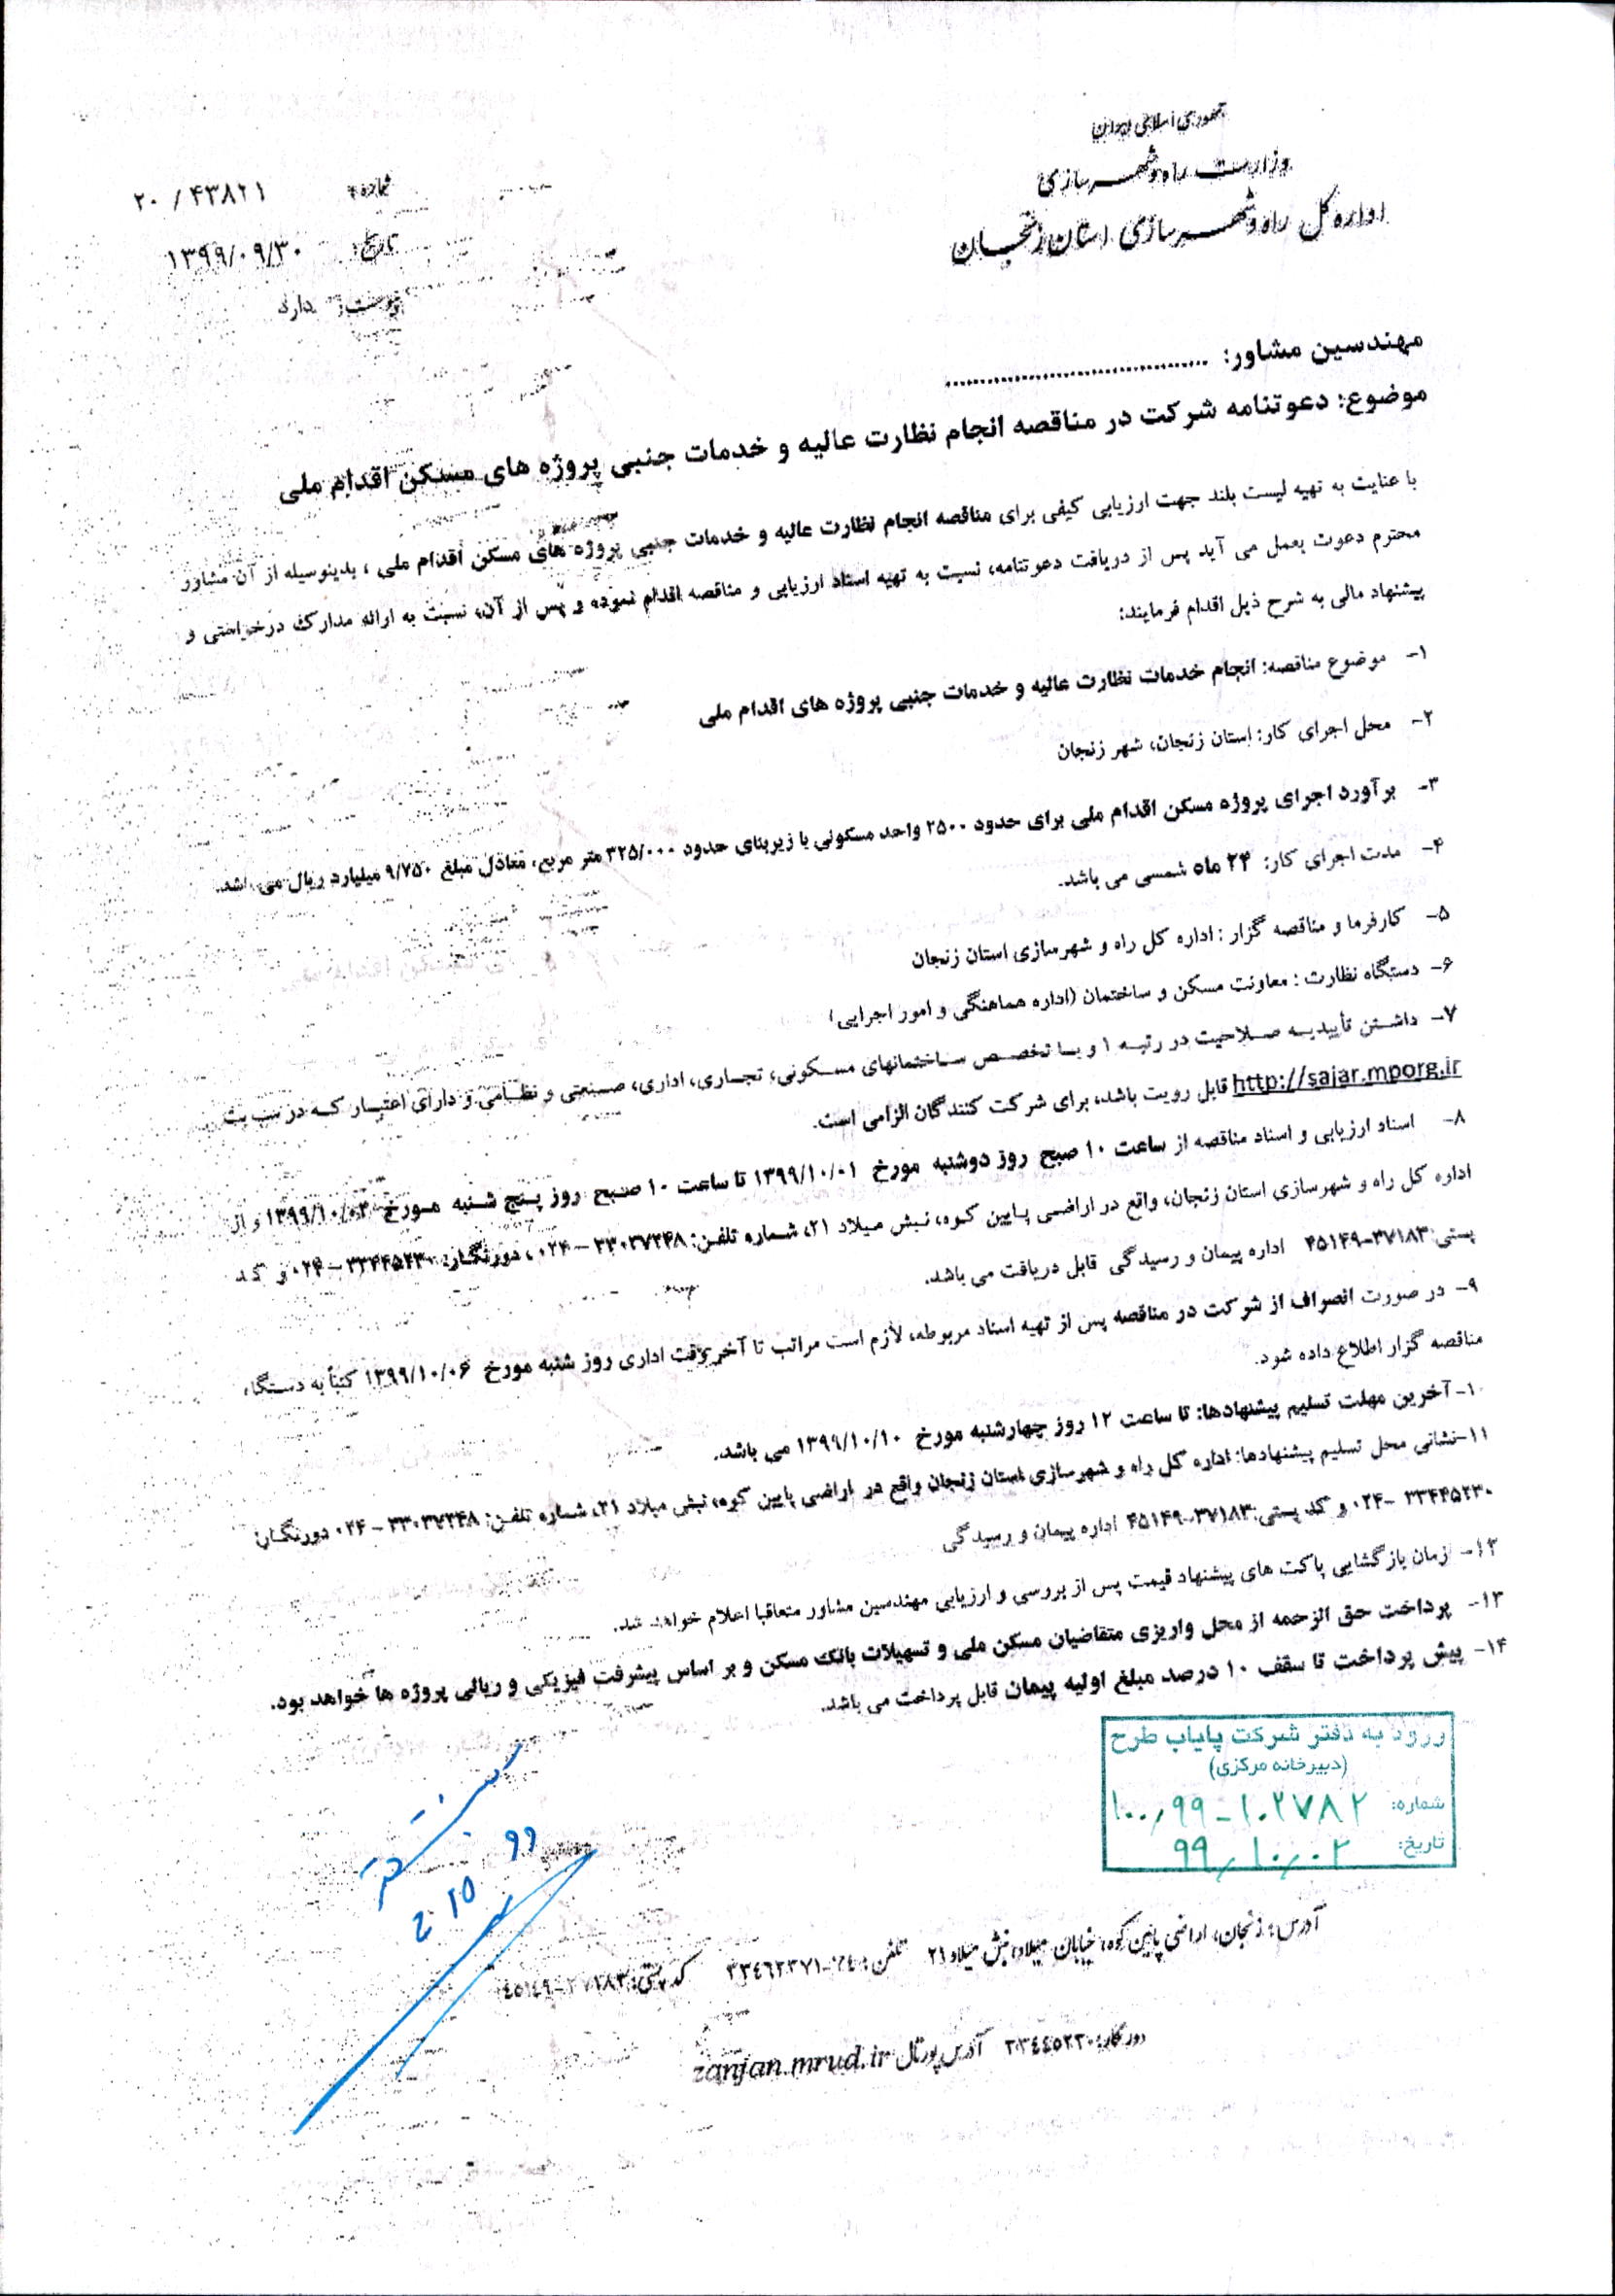 جمهوری اسلامی ایران
وزارت راه و شهرسازی
اداره کل راه و شهرسازی استان زنجان
شماره: ۲۰/۴۳۸۲۱
تاریخ: ۱۳۹۹/۰۹/۳۰
پیوست: دارد
مهندسین مشاور: ......................................
موضوع: دعوتنامه شرکت در مناقصه انجام نظارت عالیه و خدمات جنبی پروژه های مسکن اقدام ملی
با عنایت به تهیه لیست بلند جهت ارزیابی کیفی برای مناقصه انجام نظارت عالیه و خدمات جنبی پروژه های مسکن اقدام ملی ، بدینوسیله از آن مشاور
محترم دعوت بعمل می آید پس از دریافت دعوتنامه، نسبت به تهیه اسناد ارزیابی و مناقصه اقدام نموده و پس از آن، نسبت به ارائه مدارک درخواستی و
پیشنهاد مالی به شرح ذیل اقدام فرمایند:
۱- موضوع مناقصه: انجام خدمات نظارت عالیه و خدمات جنبی پروژه های اقدام ملی
۲- محل اجرای کار: استان زنجان، شهر زنجان
۳- برآورد اجرای پروژه مسکن اقدام ملی برای حدود ۲۵۰۰ واحد مسکونی با زیربنای حدود ۳۲۵/۰۰۰ متر مربع، معادل مبلغ ۹/۷۵۰ میلیارد ریال می باشد.
۴- مدت اجرای کار: ۲۴ ماه شمسی می باشد.
۵- کارفرما و مناقصه گزار : اداره کل راه و شهرسازی استان زنجان
۶- دستگاه نظارت : معاونت مسکن و ساختمان (اداره هماهنگی و امور اجرایی)
۷- داشتن تأییدیه صلاحیت در رتبه ۱ و با تخصص ساختمانهای مسکونی، تجاری، اداری، صنعتی و نظامی و دارای اعتبار که در سایت
http://sajar.mporg.ir قابل رویت باشد، برای شرکت کنندگان الزامی است.
۸- اسناد ارزیابی و اسناد مناقصه از ساعت ۱۰ صبح روز دوشنبه مورخ ۱۳۹۹/۱۰/۰۱ تا ساعت ۱۰ صبح روز پنج شنبه مورخ ۱۳۹۹/۱۰/۰۴ از
اداره کل راه و شهرسازی استان زنجان، واقع در اراضی پایین کوه، نبش میلاد ۲۱، شماره تلفن: ۳۳۰۳۷۲۴۸ - ۰۲۴ ، دورنگار: ۳۳۴۴۵۲۳۰ - ۰۲۴ و کد
پستی: ۳۷۱۸۳-۴۵۱۴۹ اداره پیمان و رسیدگی قابل دریافت می باشد.
۹- در صورت انصراف از شرکت در مناقصه پس از تهیه اسناد مربوطه، لازم است مراتب تا آخر وقت اداری روز شنبه مورخ ۱۳۹۹/۱۰/۰۶ کتباً به دستگاه
مناقصه گزار اطلاع داده شود.
۱۰- آخرین مهلت تسلیم پیشنهادها: تا ساعت ۱۲ روز چهارشنبه مورخ ۱۳۹۹/۱۰/۱۰ می باشد.
۱۱- نشانی محل تسلیم پیشنهادها: اداره کل راه و شهرسازی استان زنجان واقع در اراضی پایین کوه، نبش میلاد ۲۱، شماره تلفن: ۳۳۰۳۷۲۴۸ - ۰۲۴ دورنگار:
۳۳۴۴۵۲۳۰ - ۰۲۴ و کد پستی: ۳۷۱۸۳-۴۵۱۴۹ اداره پیمان و رسیدگی
۱۲- زمان بازگشایی پاکت های پیشنهاد قیمت پس از بررسی و ارزیابی مهندسین مشاور متعاقبا اعلام خواهد شد.
۱۳- پرداخت حق الزحمه از محل واریزی متقاضیان مسکن ملی و تسهیلات بانک مسکن و بر اساس پیشرفت فیزیکی و ریالی پروژه ها خواهد بود.
۱۴- پیش پرداخت تا سقف ۱۰ درصد مبلغ اولیه پیمان قابل پرداخت می باشد.
ورود به دفتر شرکت پایاب طرح
(دبیرخانه مرکزی)
شماره: ۱۰۰/۹۹-۱۰۲۷۸۲
تاریخ: ۹۹/۱۰/۰۲
آدرس: زنجان، اراضی پایین کوه، خیابان میلاد، نبش میلاد ۲۱ تلفن: ۰۲٤-۳۳٤٦۲۳۷۱ کد پستی: ۳۷۱۸۳-٤٥۱٤۹
دورنگار: ۳۳٤٤٥۲۳۰ آدرس پورتال zanjan.mrud.ir